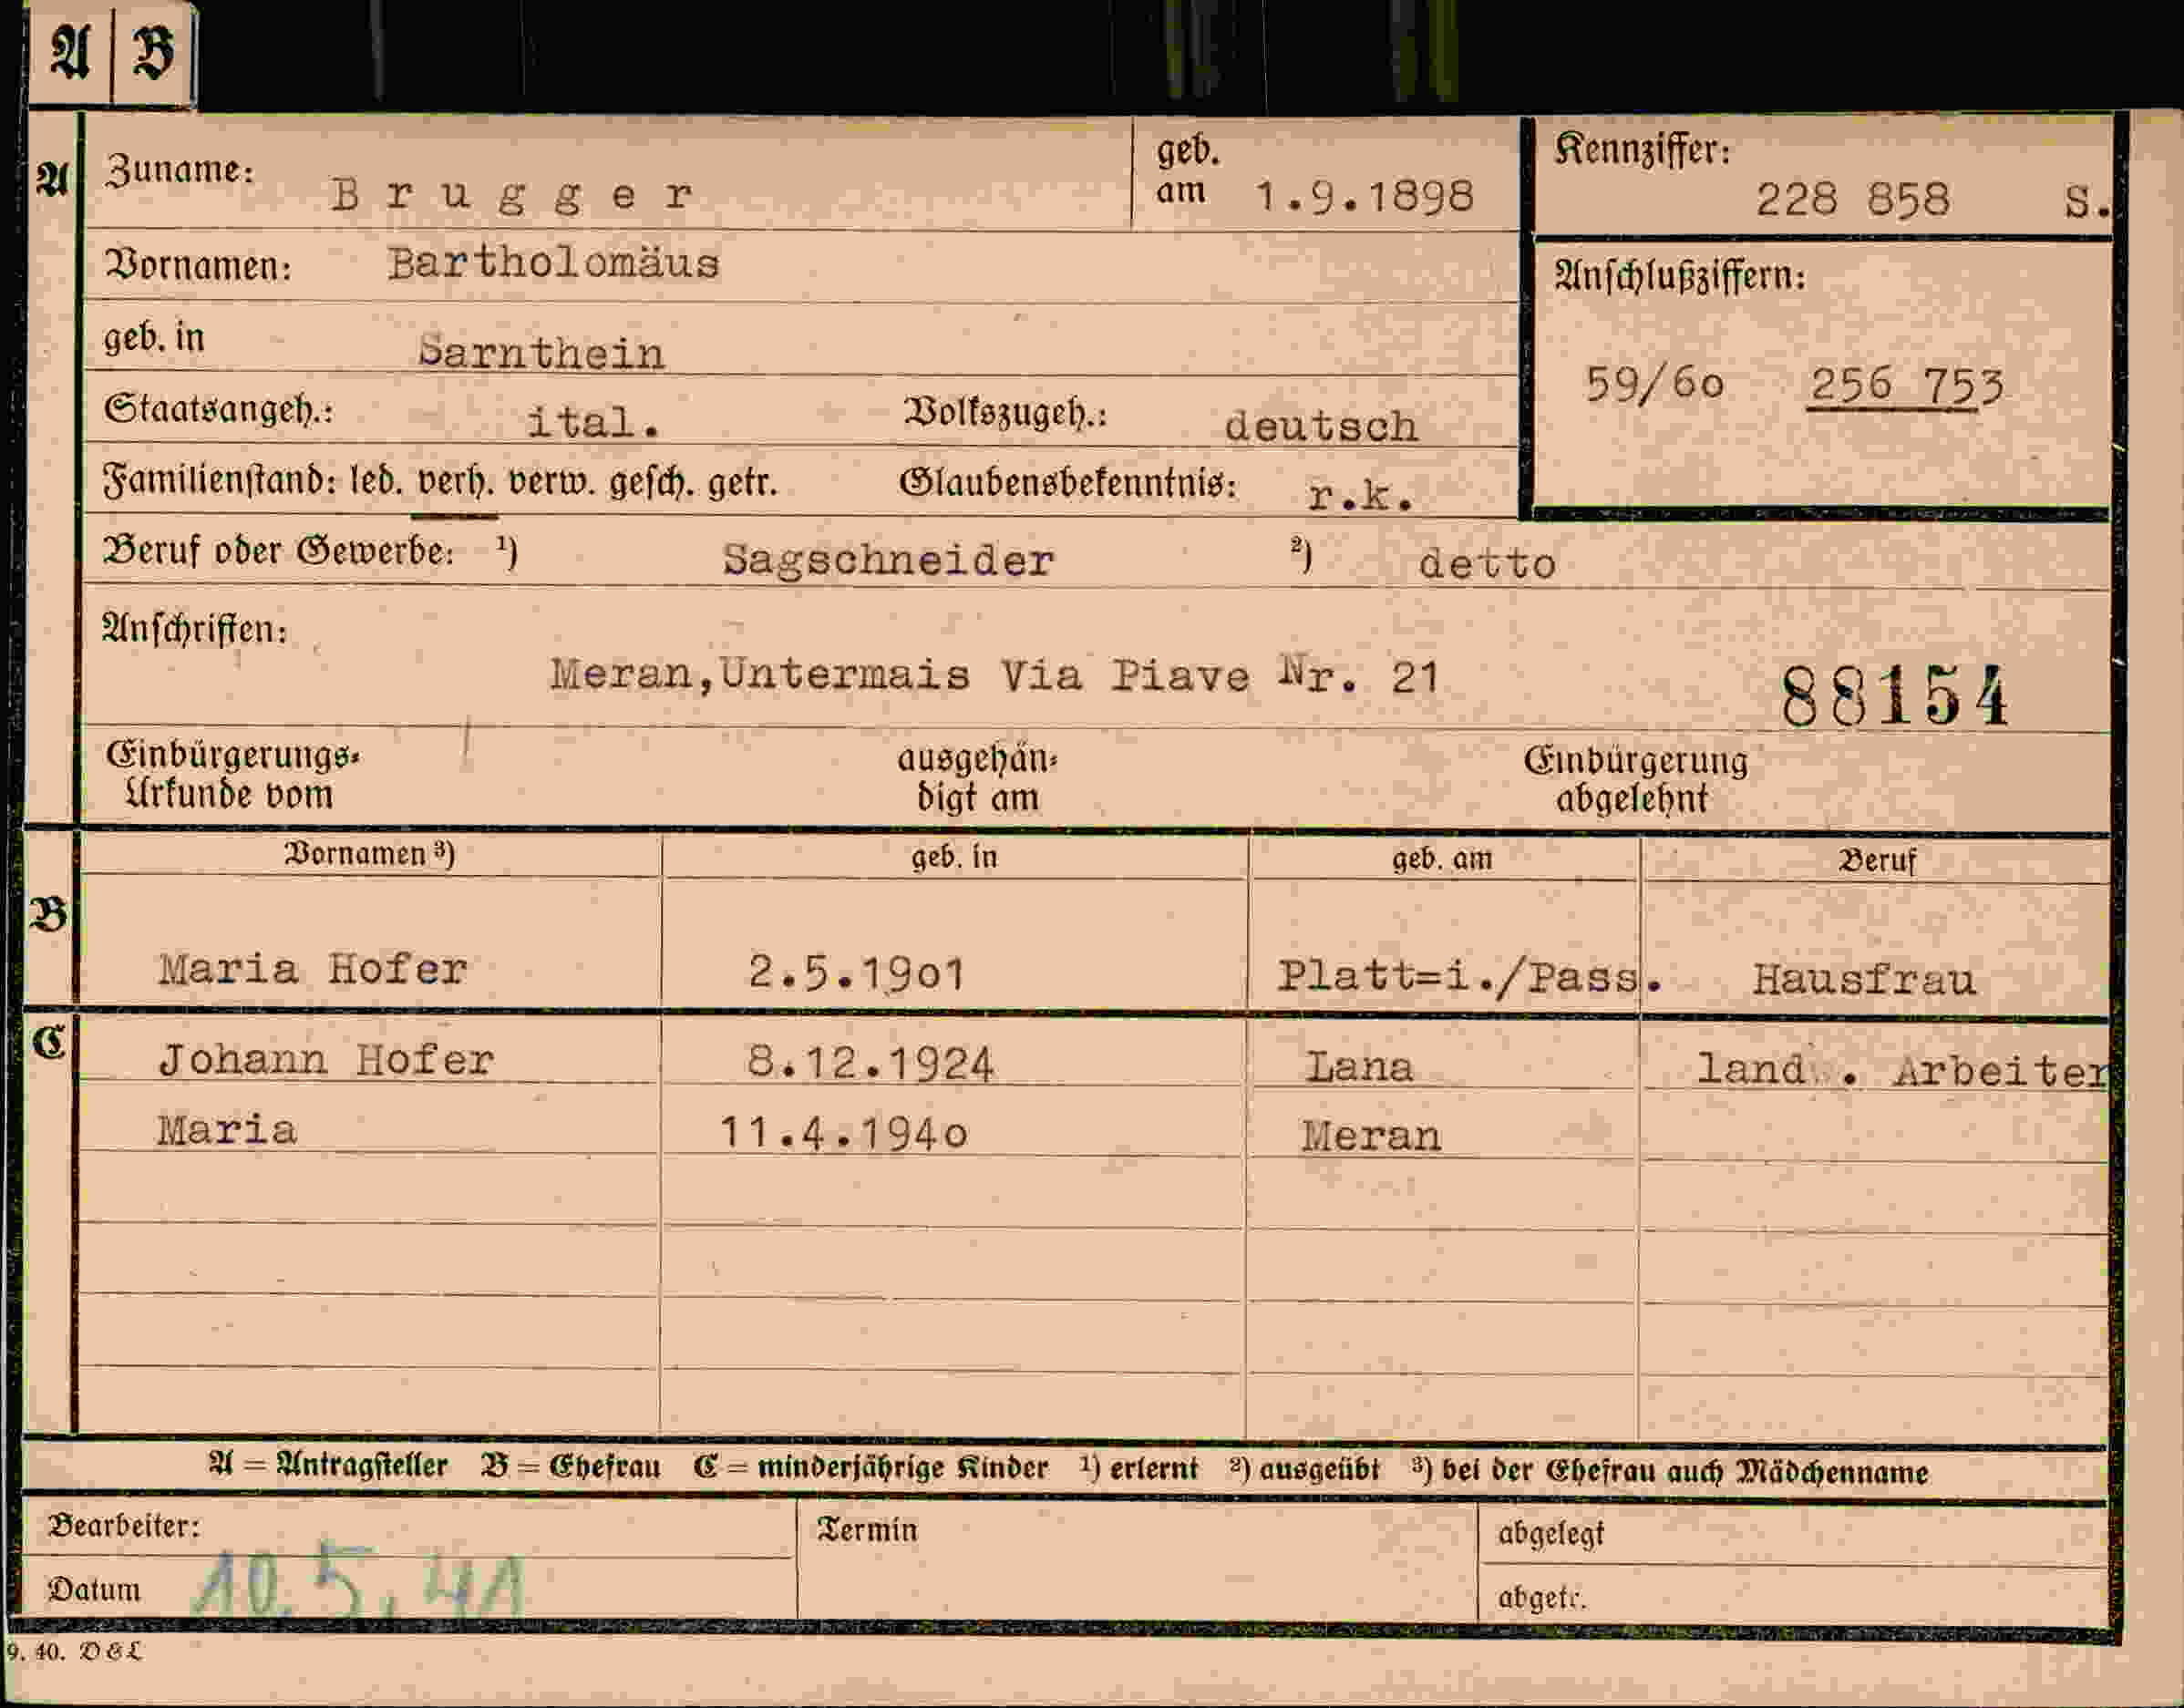 A B
A Zuname: Brugger geb. am 1.9.1898 Kennziffer: 228 858 S.
Vornamen: Bartholomäus Anschlußziffern:
geb. in Sarnthein 59/6o 256 753
Staatsangeh.: ital. Volkszugeh.: deutsch
Familienstand: led. verh. verw. gesch. getr. Glaubensbekenntnis: r.k.
Beruf oder Gewerbe: ¹) Sagschneider ²) detto
Anschriften:
Meran,Untermais Via Piave Nr. 21 88154
Einbürgerungs- ausgehän- Einbürgerung
Urkunde vom digt am abgelehnt
Vornamen ³) geb. in geb. am Beruf
B
Maria Hofer 2.5.19o1 Platt=i./Pass. Hausfrau
C Johann Hofer 8.12.1924 Lana land . Arbeiter
Maria 11.4.194o Meran
A = Antragsteller B = Ehefrau C = minderjährige Kinder ¹) erlernt ²) ausgeübt ³) bei der Ehefrau auch Mädchenname
Bearbeiter: Termin abgelegt
Datum 10.5.41 abgetr.
9. 40. D&L